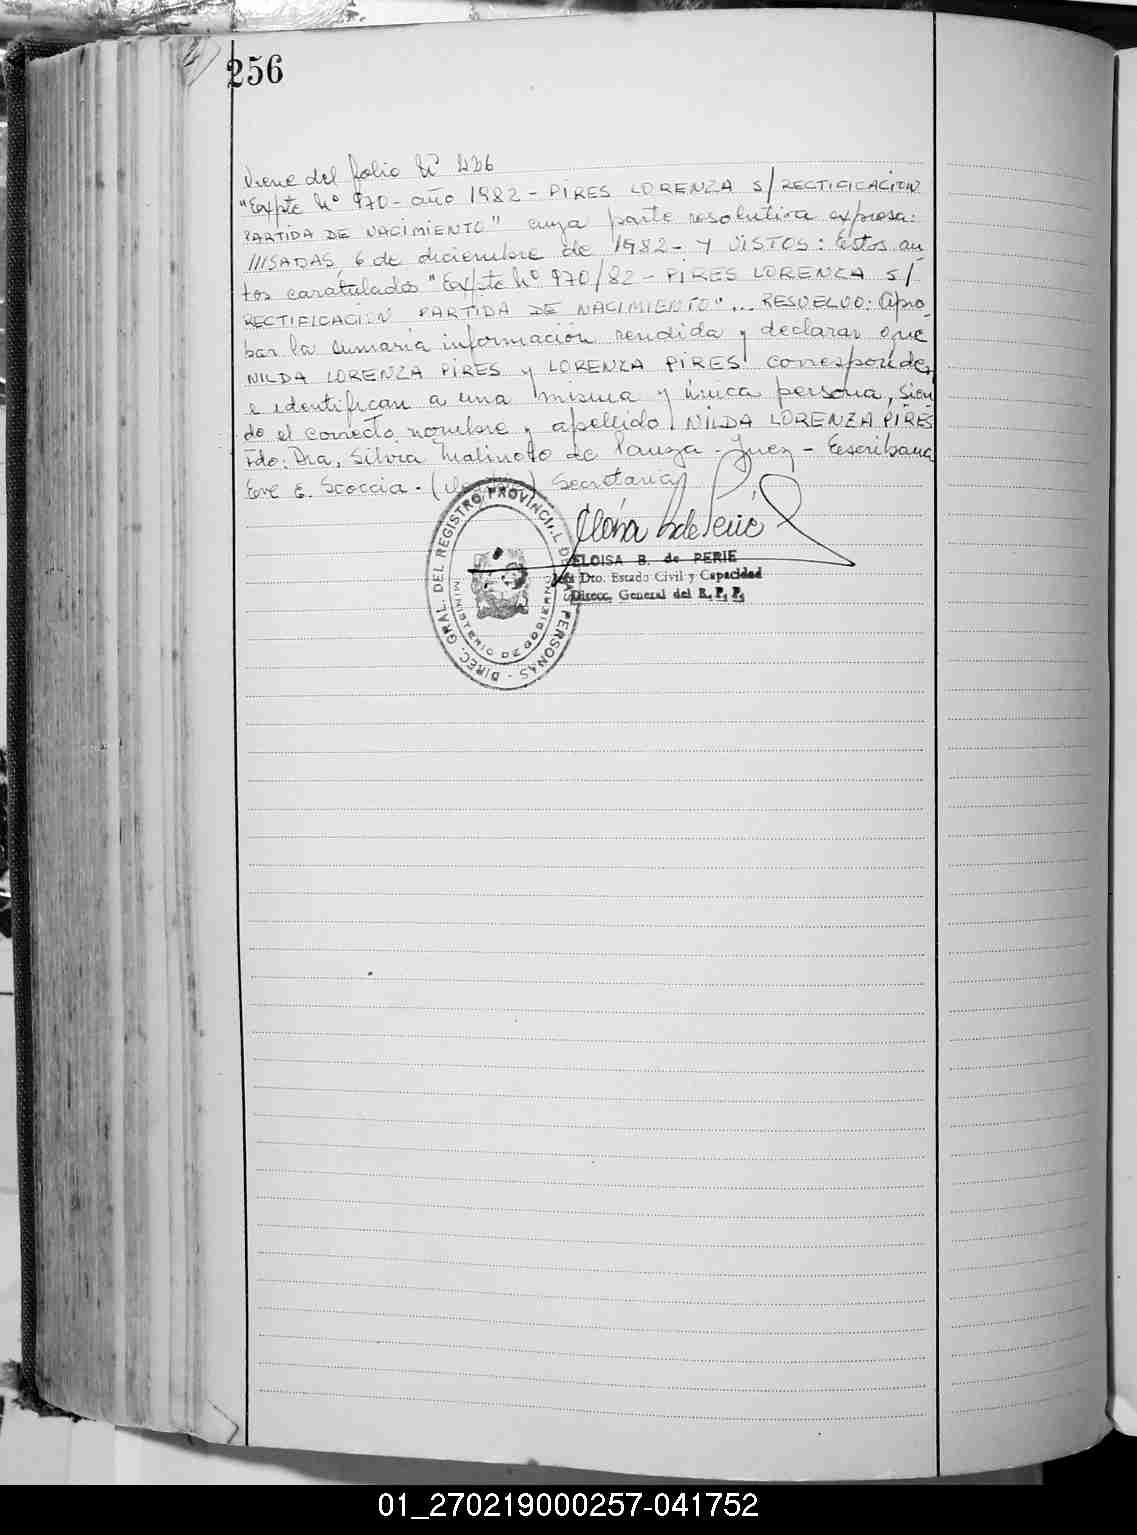 256
Viene del folio Nº 226
"Expte Nº 970 - año 1982 - PIRES LORENZA S/ RECTIFICACION
PARTIDA DE NACIMIENTO" cuya parte resolutiva expresa:
///SADAS, 6 de diciembre de 1982 - Y VISTOS: Estos au
tos caratulados "Expte Nº 970/82 - PIRES LORENZA S/
RECTIFICACION PARTIDA DE NACIMIENTO"... RESUELVO: Apro
bar la sumaria información rendida y declarar que
NILDA LORENZA PIRES y LORENZA PIRES corresponden
e identifican a una misma y única persona, sien
do el correcto nombre y apellido NILDA LORENZA PIRES
Fdo: Dra. Silvia de - Juez - Escribana
Eve E. Scoccia - Secretaria
DIREC. GRAL. DEL REGISTRO PROVINCIAL DE LAS PERSONAS
MINISTERIO DE GOBIERNO
ELOISA B. de PERIE
Jefe Dto. Estado Civil y Capacidad
Direcc. General del R. P. P.
01_270219000257-041752